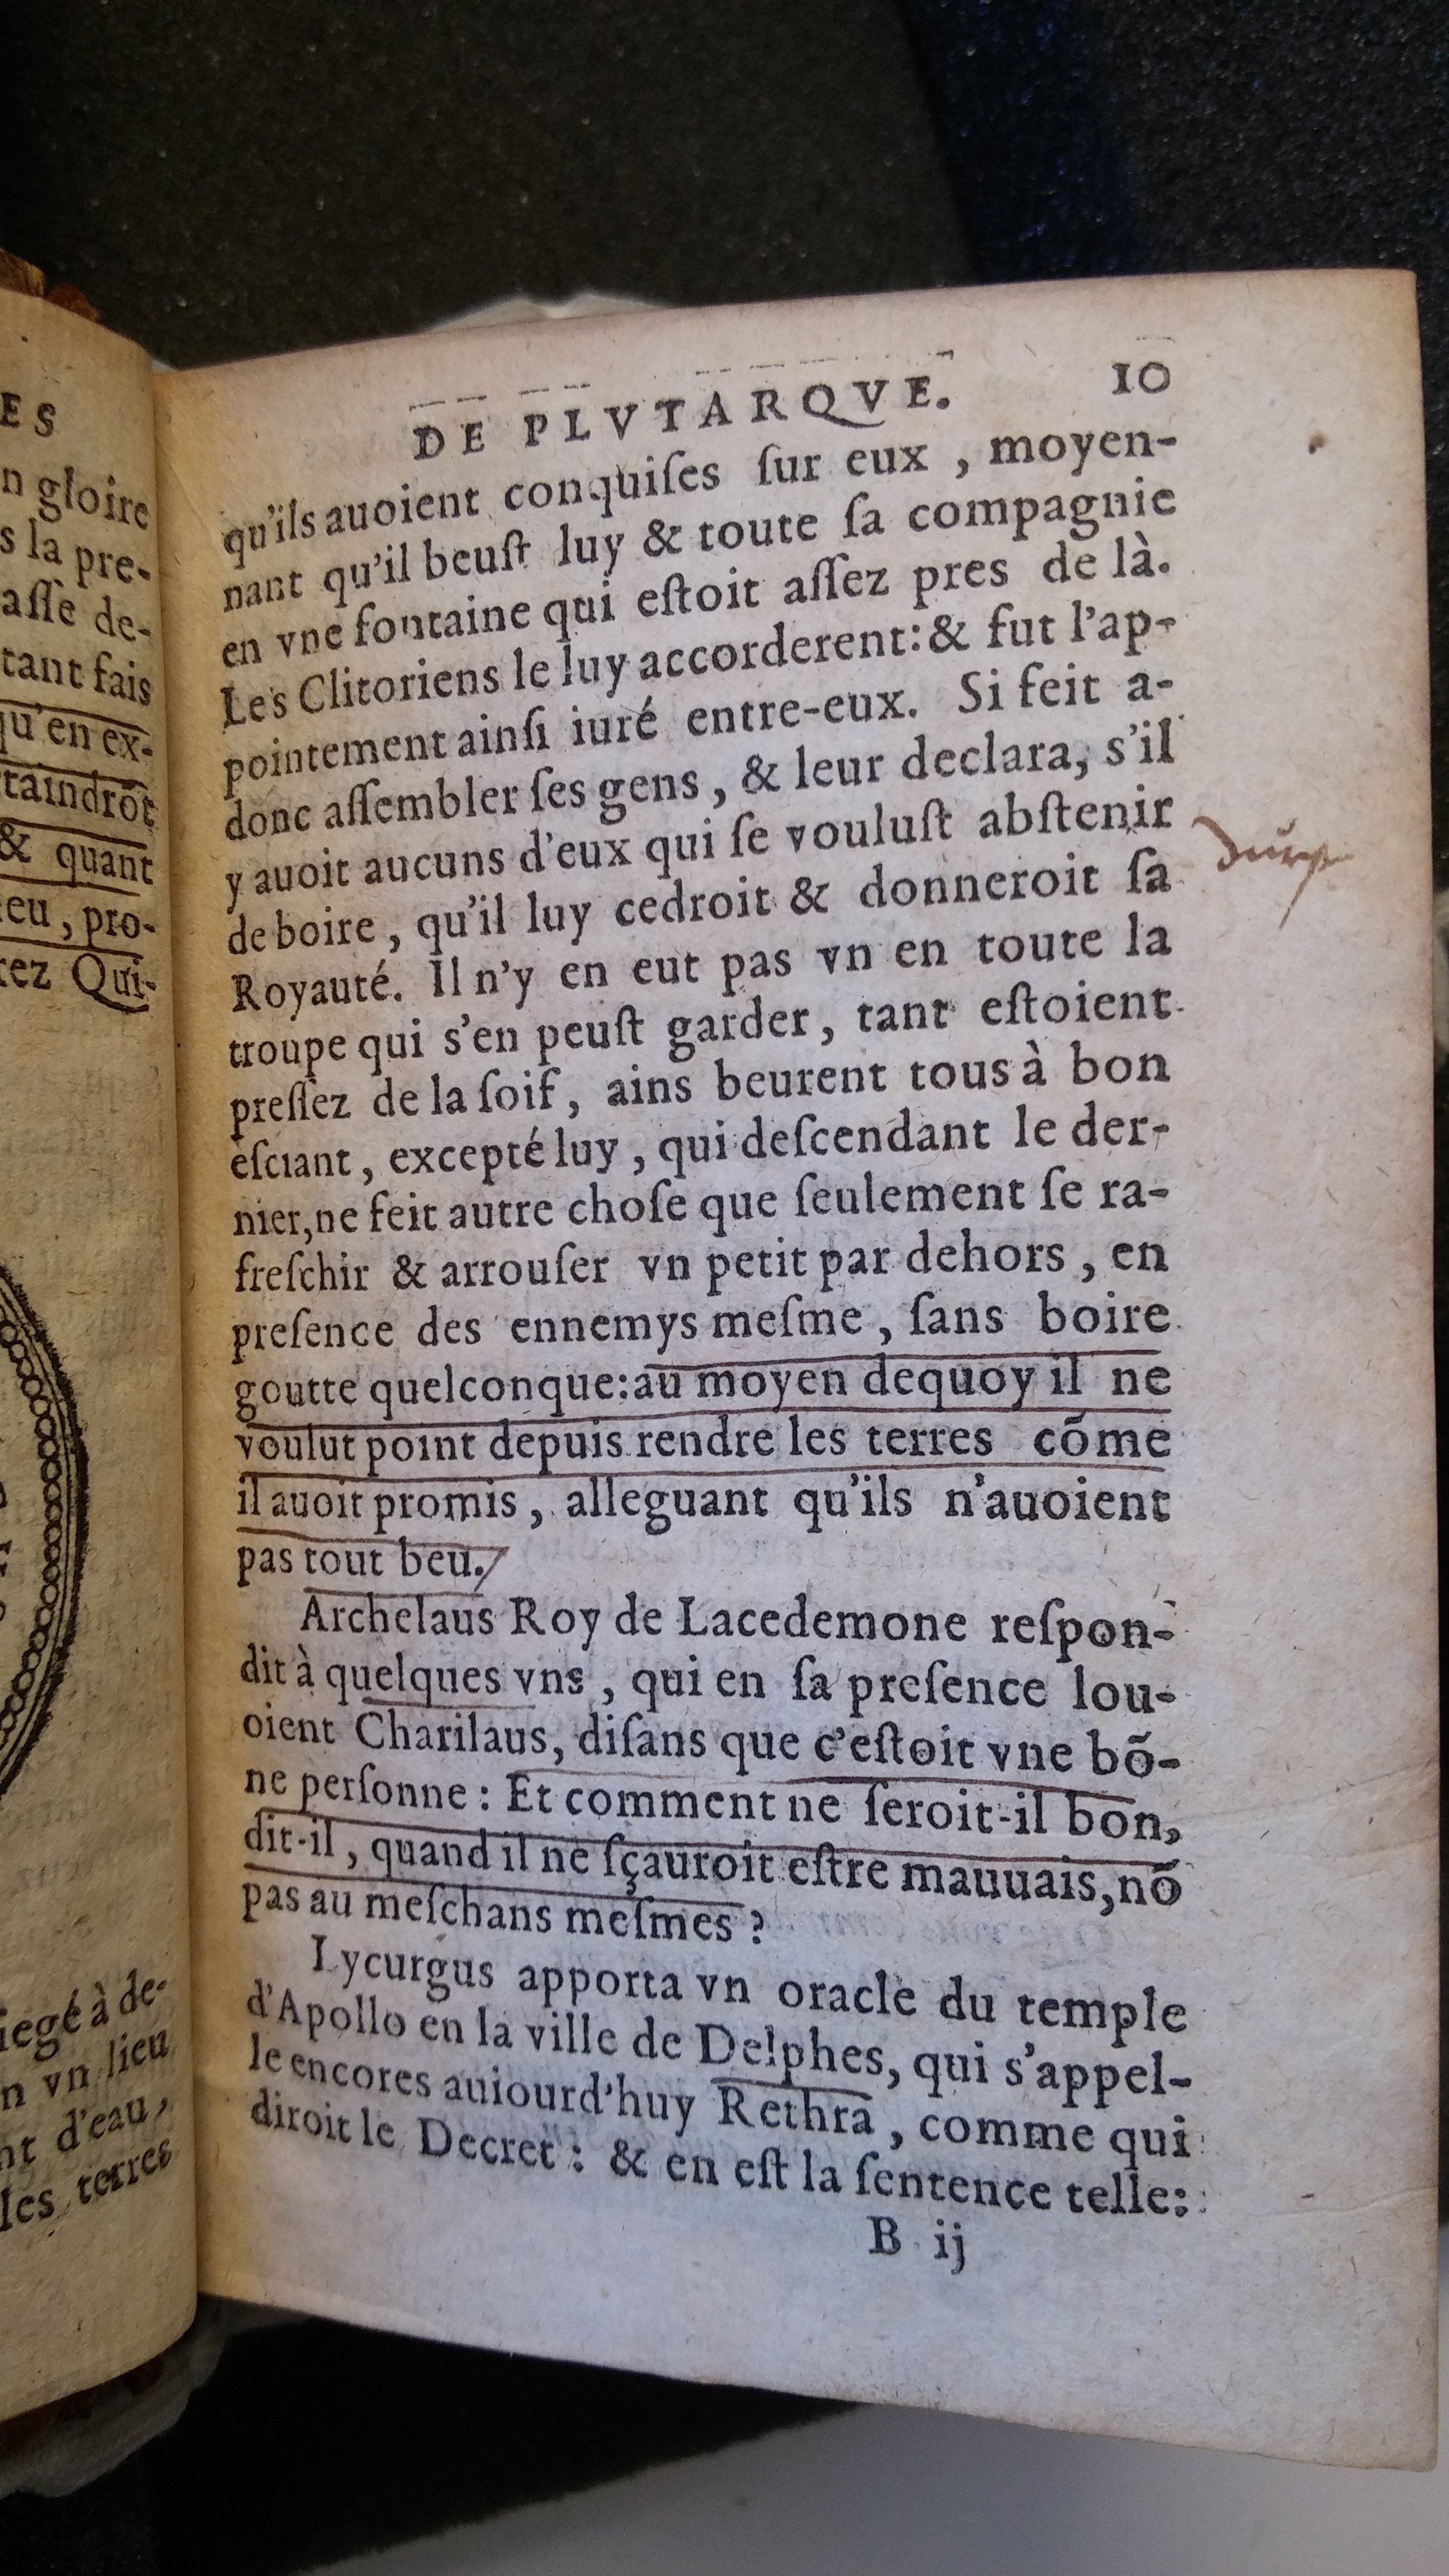 ES
n gloire
s la pre-
aſſe de-
tant fais
qu'en ex-
taindrõt
& quant
ieu, pro-
rez Qui-
iegé à de-
n vn lieu
nt d'eau,
les terres
DE PLVTARQVE. 10
qu'ils auoient conquiſes ſur eux , moyen-
nant qu'il beuſt luy & toute ſa compagnie
en vne fontaine qui eſtoit aſſez pres de là.
Les Clitoriens le luy accorderent:& fut l'ap-
pointement ainſi iuré entre-eux. Si feit a-
donc aſſembler ſes gens , & leur declara, s'il
y auoit aucuns d'eux qui ſe vouluſt abſtenir
de boire , qu'il luy cedroit & donneroit ſa
Royauté. Il n'y en eut pas vn en toute la
troupe qui s'en peuſt garder , tant eſtoient
preſſez de la ſoif , ains beurent tous à bon
eſciant , excepté luy , qui deſcendant le der-
nier,ne feit autre choſe que ſeulement ſe ra-
freſchir & arrouſer vn petit par dehors , en
preſence des ennemys meſme , ſans boire
goutte quelconque:au moyen dequoy il ne
voulut point depuis rendre les terres cõme
il auoit promis , alleguant qu'ils n'auoient
pas tout beu./
Archelaus Roy de Lacedemone reſpon-
dit à quelques vns , qui en ſa preſence lou-
oient Charilaus, diſans que c'eſtoit vne bõ-
ne perſonne : Et comment ne ſeroit-il bon,
dit-il , quand il ne ſçauroit eſtre mauuais,nõ
pas au meſchans meſmes ?
Lycurgus apporta vn oracle du temple
d'Apollo en la ville de Delphes, qui s'appel-
le encores auiourd'huy Rethra , comme qui
diroit le Decret : & en eſt la ſentence telle:
B ij